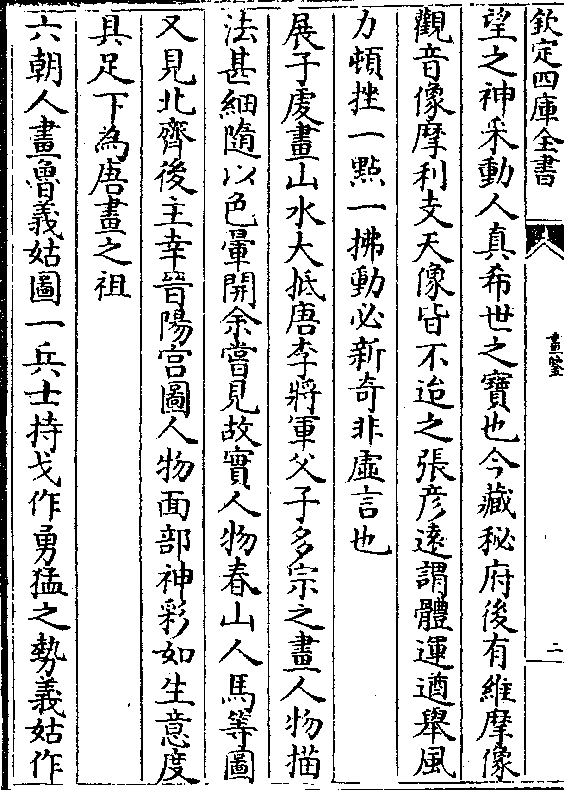 欽定四庫全書
畫鑒
二
望之神采動人真希世之寶也今藏秘府後有維摩像
觀音像摩利支天像皆不迨之張彥遠謂體運遒舉風
力頓挫一點一拂動必新奇非虛言也
展子虔畫山水大抵唐李將軍父子多宗之畫人物描
法甚細隨以色暈開余嘗見故實人物春山人馬等圖
又見北齊後主幸晉陽宮圖人物面部神彩如生意度
具足下為唐畫之祖
六朝人畫魯義姑圖一兵士持戈作勇猛之勢義姑作